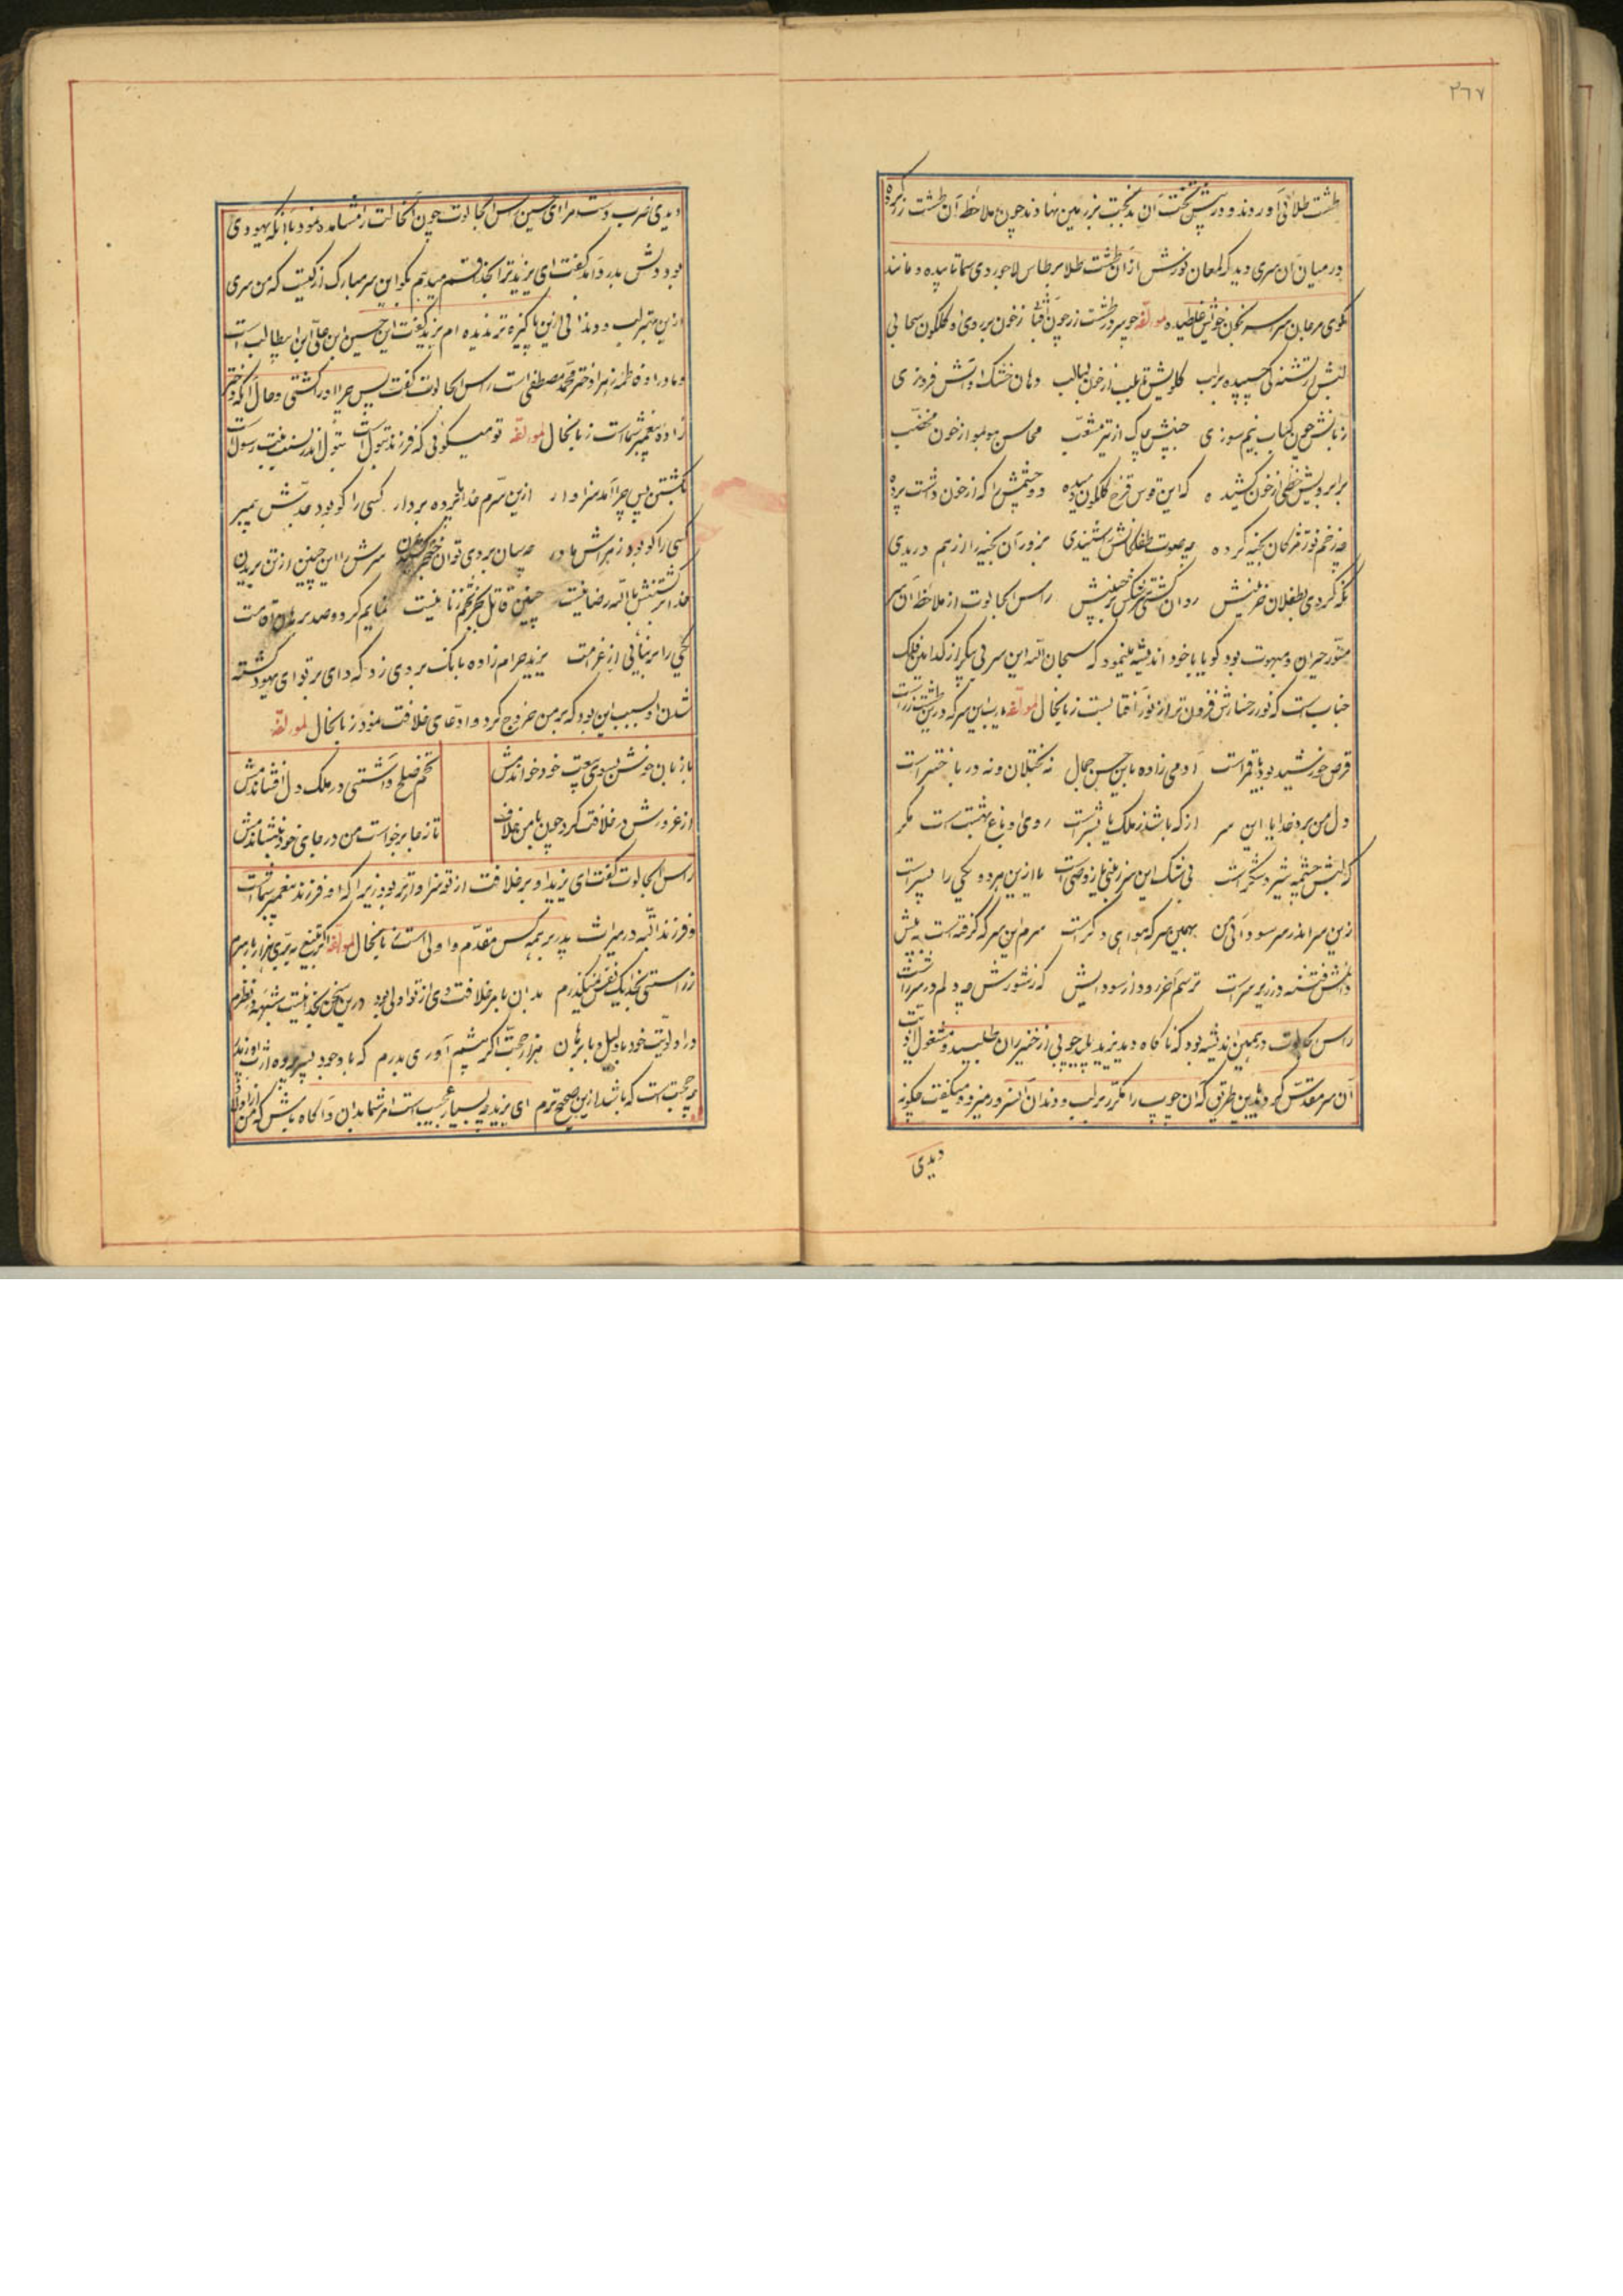 ٣٦٧
طشت طلائی آوردند و در پیش تخت آن بدبخت بزرمین نهادند چون ملاحظه آن طشت زر کرد
در میان آن سری دید که لمعان نورش از آن طشت طلا بر طاس لاجوردی سما تابیده و مانند
کوی مرجان سراسر بخون خویش غلطیده لمولفه چو سر در طشت زر چون آفتاب ز خون بر روی او گلگون سحابی
لبش از تشنگی چسپیده بر لب گلویش تا بلب از خون لبالب دهان خشک او آتش فروزی
زبانش چون کباب نیم سوزی جبینش چاک از تیر مشعب محاسن مو بمو از خون مخضب
برابرویش خطی از خون کشیده که این قوس قزح گلگون دمیده دو چشمش را که از خون داشت پرده
چه زخم نور مژگان بخیه کرده چه صوت طفلکانش را شنیدی بزور آن بخیه را از هم دریدی
نگه کردی بطفلان حزینش روان گشتی سرشکش بر جبینش راس الجالوت از ملاحظه آن سر
منور حیران و مبهوت بود گویا با خود اندیشه مینمود که سبحان الله این سر بی پیکر از کدام فلک
جناب است که نور رخسارش فزون تر از نور آفتابست زبانحال لمولفه یا رب این سر که درین طشت زر است
قرص خورشید بود یا قمر است آدمی زاده باین حسن جمال نه بختلان و نه در باختر است
دل من برد خدایا این سر از که باشد ز ملک یا بشر است روی او باغ بهشت است مگر
که لبش چشمه شیر و شکر است بی شک این سر ز نبی یا ز وصی است یا ازین هر دو یکی را پسر است
زین سر اندر سر سودائی من بهمین سر که هوای دگر است سرم این سر که گرفته است به پیش
دانمش فتنه در زیر سر است ترسم آخر رود از سودایش که ز شورش چه دلم در سرر است
راس الجالوت در همین اندیشه بود که ناگاه دید یزید پلید چوبی از خیزران طلبید و مشغول اذیت
آن سر مقدس گردید باین طریق که آن چوب را مکرر بر لب و دندان آنسرور میزد و میگفت چگونه
دیدی
دیدی ضرب دست مرا ای حسین راس الجالوت چون آنحالت را مشاهده نمود با آنکه یهودی
بود دلش بدرد آمد گفت ای یزید ترا بخدا قسم میدهم بگو این سر مبارک از کیست که من سری
ازین بهتر لب و دندانی ازین پاکیزه تر ندیده ام یزید گفت این حسین ابن علی ابن ابیطالب است
و مادر او فاطمه زهرا دختر محمد مصطفی است راس الجالوت گفت پس چرا او را کشتی و حال آنکه او دختر
زاده پیغمبر شماست زبانحال لمولفه تو میگوئی که فرزند بتول است بتول اندر نسب بنت رسول است
بکشتن پس چرا آمد سزاوار ازین سرم خدا را پرده بردار کسی را کو بود جدش پیمبر
کسی را کو بود زهراش مادر چه سان بر وی توان خنجر کشیدن سرش را این چنین از تن بریدن
خدا بر کشتنش بالله رضا نیست چنین قاتل بجز تخم زنا نیست
یکی را بر نیائی از غرامت یزید حرام زاده بانک بر وی زد که وای بر تو ای یهود کشته
شدن او بسبب این بود که بر من خروج کرد و ادعای خلافت نمود زبانحال لمولفه
با زبان خوش بسوی بیعت خود خواندمش تخم صلح و آشتی در ملک دل افشاندمش
از غرورش در خلافت کرد چون با من خلاف تا ز جا برخواست من در جای خود بنشاندمش
راس الجالوت گفت ای یزید او بر خلافت از تو سزاوارتر بود زیرا که او فرزند پیغمبر شماست
و فرزند البته در میراث پدر بر همه کس مقدم و اولی است زبانحال لمولفه اگر به تیغ به بری هزار بار سرم
ز راستی بخدا یک نفس نمیگذرم بدان بامر خلافت وی از تو اولی بود درین سخن بخدا نیست شبهه در نظرم
در اولویت خود با دلیل و با برهان هزار حجت اگر پیشم آوری بدرم که با وجود پسر
چه حجت است که باشد ازین صحیح ترم ای یزید چه بسیار عجیب است امر شما بدان و آگاه باش که من از اولاد